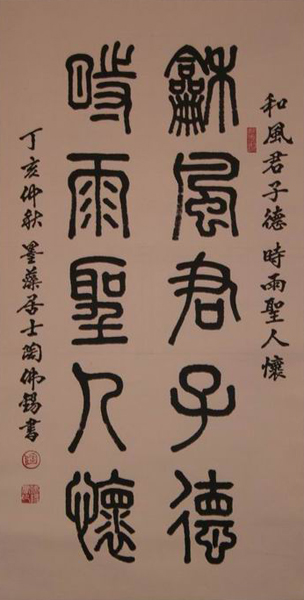 和風君子德時雨聖人懷
龢風君子德
時雨聖人懷
丁亥仲秋墨藻居士陶佛錫書